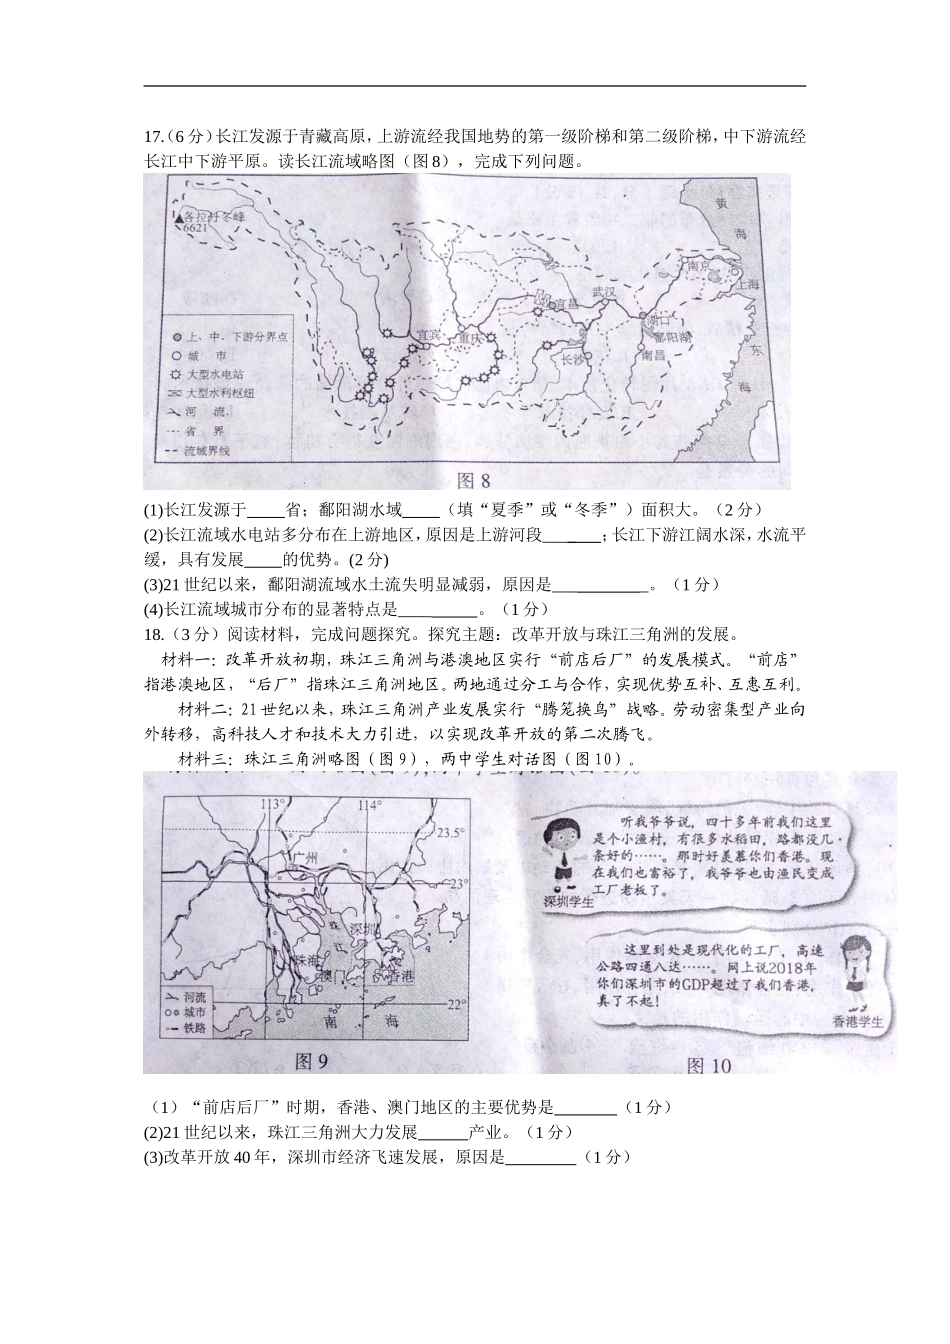 17.（6 分）长江发源于青藏高原，上游流经我国地势的第一级阶梯和第二级阶梯，中下游流经
长江中下游平原。读长江流域略图（图 8），完成下列问题。
黄
海
各拉丹冬峰
6621
南京
上海
武汉
宜昌
湖口
宜宾
重庆
鄱阳湖
长沙
南昌
东
海
上、中、下游分界点
城 市
大型水电站
大型水利枢纽
河 流
省 界
流域界线
图 8
(1)长江发源于____省；鄱阳湖水域____（填“夏季”或“冬季”）面积大。（2 分）
(2)长江流域水电站多分布在上游地区，原因是上游河段______；长江下游江阔水深，水流平
缓，具有发展____的优势。(2 分)
(3)21 世纪以来，鄱阳湖流域水土流失明显减弱，原因是__________。（1 分）
(4)长江流域城市分布的显著特点是________。（1 分）
18.（3 分）阅读材料，完成问题探究。探究主题：改革开放与珠江三角洲的发展。
材料一：改革开放初期，珠江三角洲与港澳地区实行“前店后厂”的发展模式。“前店”
指港澳地区，“后厂”指珠江三角洲地区。两地通过分工与合作，实现优势互补、互惠互利。
材料二：21 世纪以来，珠江三角洲产业发展实行“腾笼换鸟”战略。劳动密集型产业向
外转移，高科技人才和技术大力引进，以实现改革开放的第二次腾飞。
材料三：珠江三角洲略图（图 9），两中学生对话图（图 10）。
113° 114°
23.5°
广州
23°
珠
江
深圳
珠海
澳门
香港
22°
南 海
河流
城市
铁路
图 9
听我爷爷说，四十多年前我们这里
是个小渔村，有很多水稻田，路都没几
条好的……。那时好羡慕你们香港。现
在我们也富裕了，我爷爷也由渔民变成
工厂老板了。
深圳学生
这里到处是现代化的工厂，高速
公路四通八达……。网上说2018年
你们深圳市的GDP超过了我们香港，
真了不起！
香港学生
图 10
（1）“前店后厂”时期，香港、澳门地区的主要优势是_______（1 分）
(2)21 世纪以来，珠江三角洲大力发展______产业。（1 分）
(3)改革开放 40 年，深圳市经济飞速发展，原因是________（1 分）